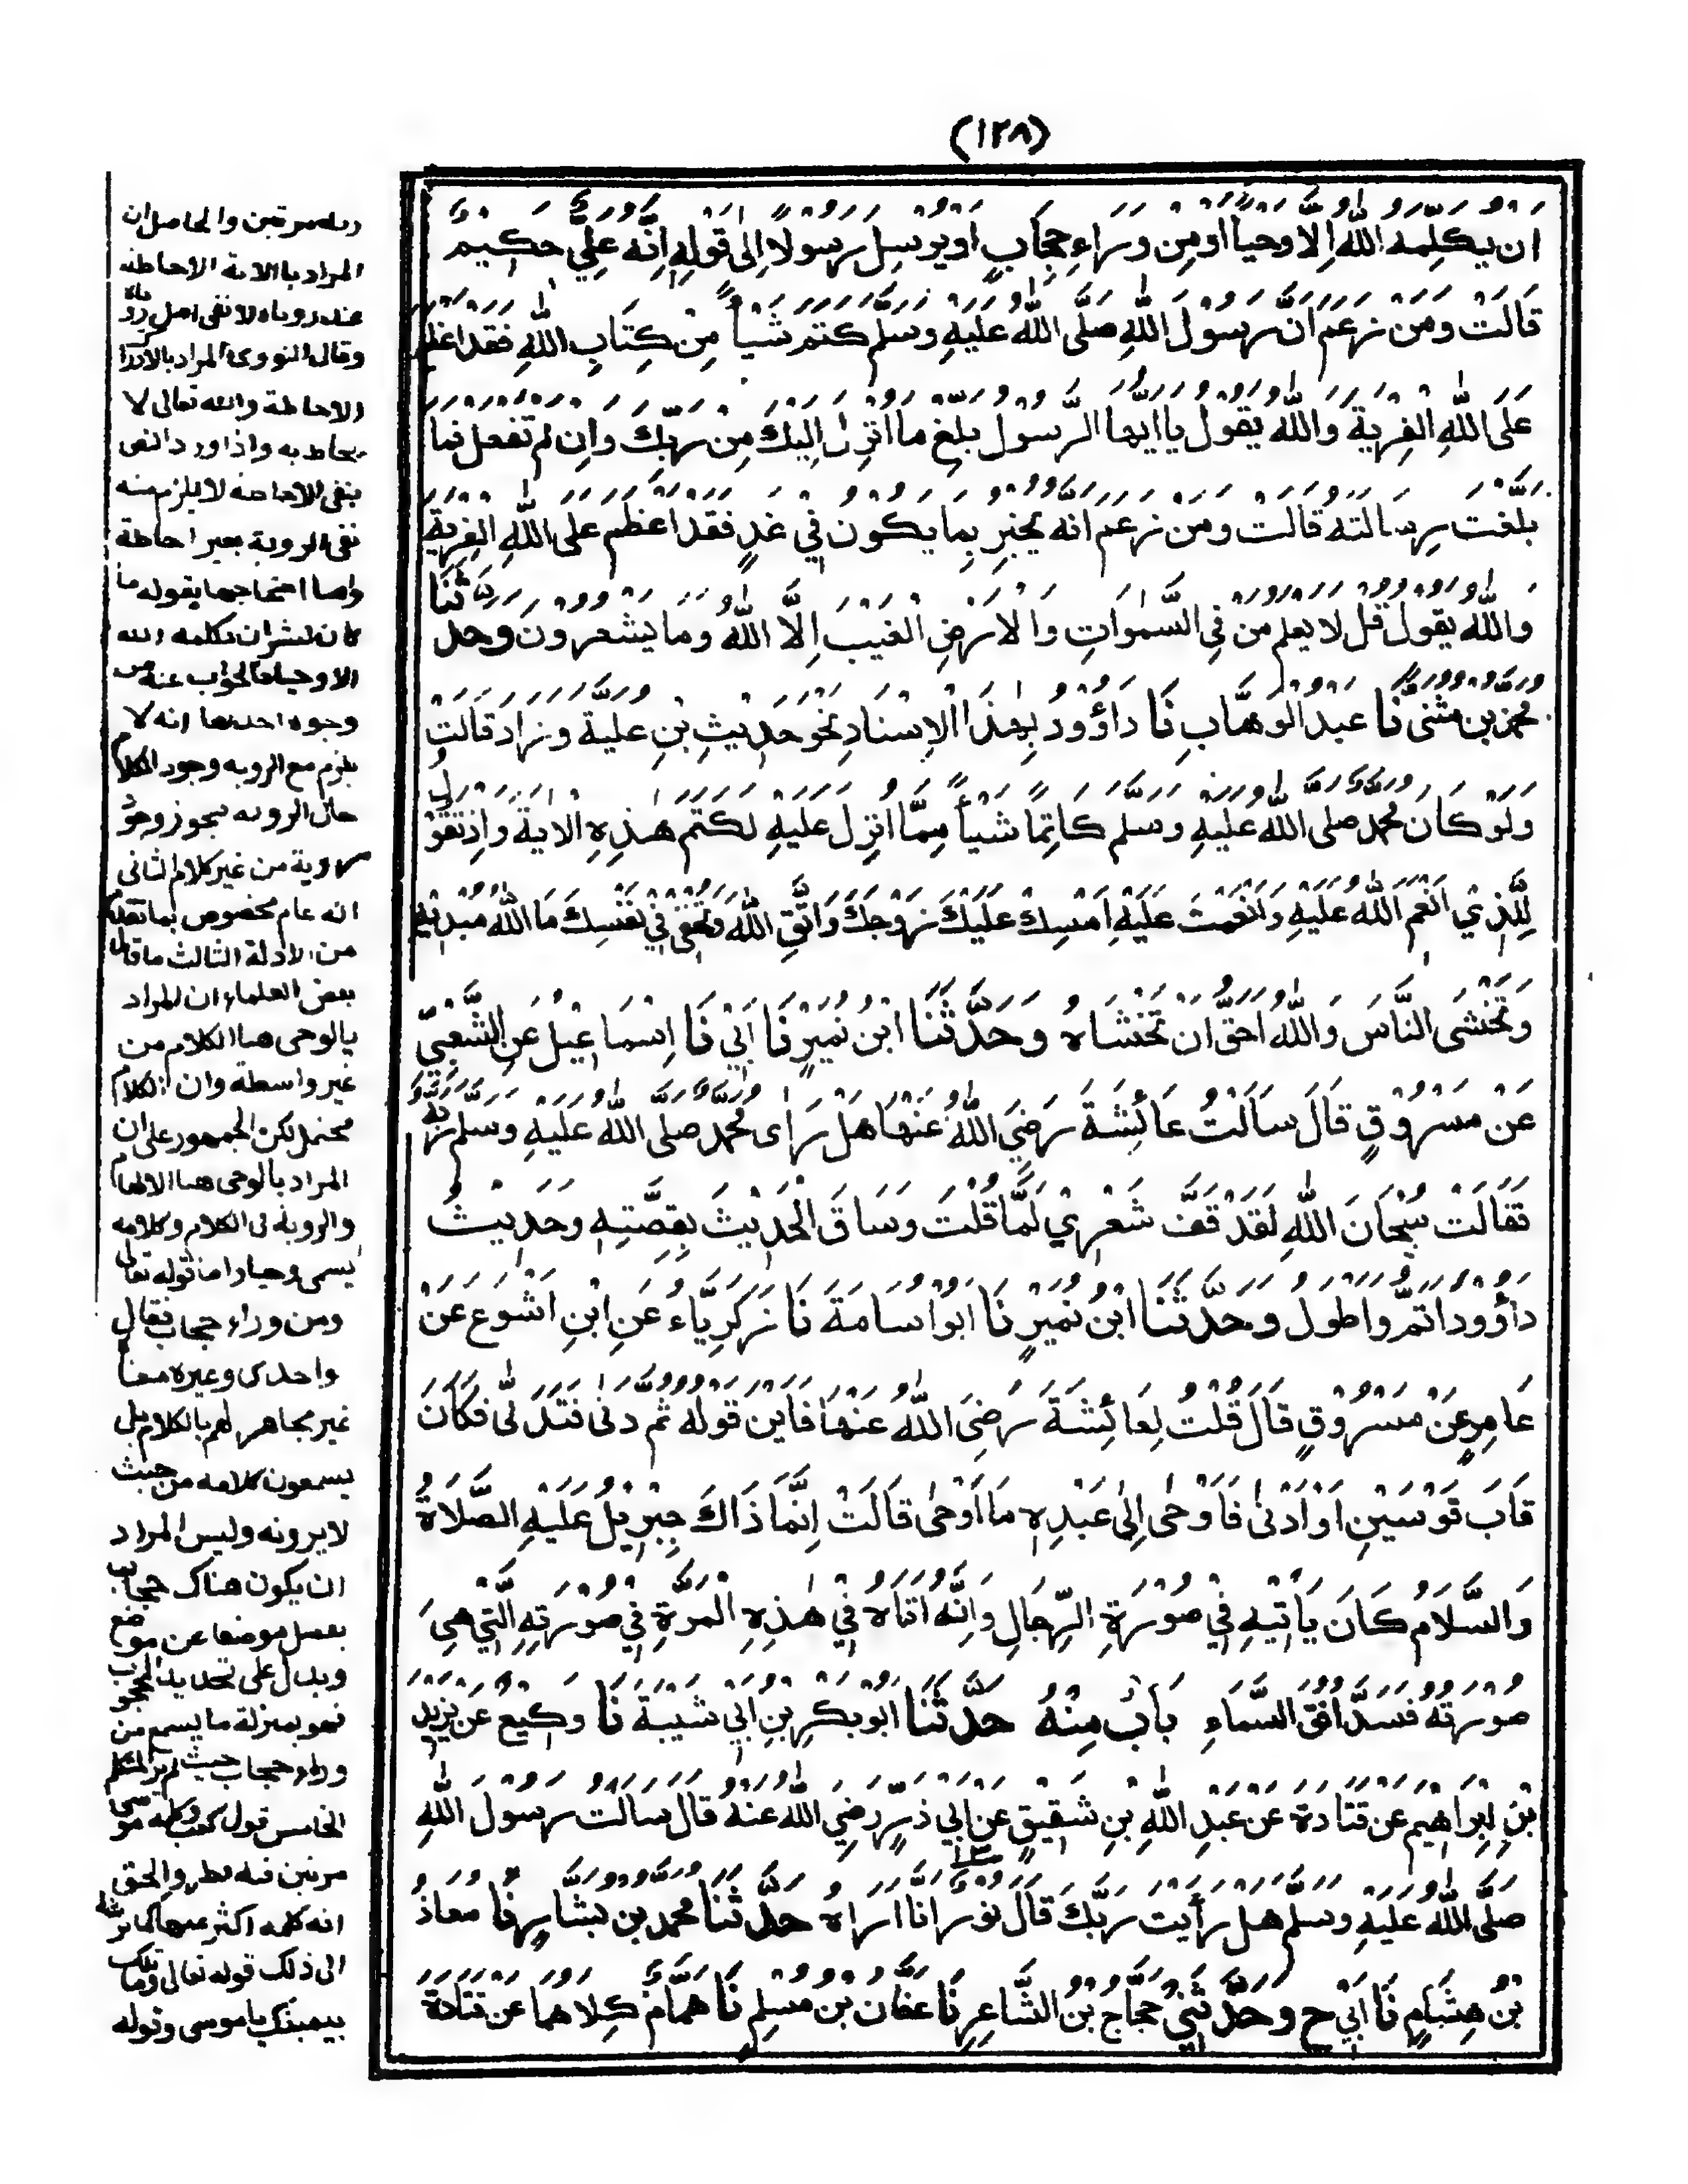 (١٢٨)
ان يكلمه الله الا وحيا او من وراء حجاب او يرسل رسولا الى قوله انه علي حكيم
قالت ومن زعم ان رسول الله صلى الله عليه وسلم كتم شيأ من كتاب الله فقد اعظم
على الله الفرية والله يقول يا ايها الرسول بلغ ما انزل اليك من ربك وان لم تفعل فما
بلغت رسالته قالت ومن زعم انه يخبر بما يكون في غد فقد اعظم على الله الفرية
والله يقول قل لا يعلم من في السموات والارض الغيب الا الله وما يشعرون وحدثنا
محمد بن مثنى نا عبد الوهاب نا داؤود بهذا الاسناد نحو حديث بن علية وزاد قالت
ولو كان محمد صلى الله عليه وسلم كاتما شيأ مما انزل عليه لكتم هذه الاية واذ تقول
للذي انعم الله عليه وانعمت عليه امسك عليك زوجك واتق الله وتخفي في نفسك ما الله مبديه
وتخشى الناس والله احق ان تخشاه وحدثنا ابن نمير نا ابي نا اسماعيل عن الشعبي
عن مسروق قال سالت عائشة رضي الله عنها هل راى محمد صلى الله عليه وسلم ربه
فقالت سبحان الله لقد قف شعري لما قلت وساق الحديث بقصته وحديث
داؤود اتم واطول وحدثنا ابن نمير نا ابو اسامة نا زكرياء عن ابن اشوع عن
عامر عن مسروق قال قلت لعائشة رضي الله عنها فاين قوله ثم دنى فتدلى فكان
قاب قوسين او ادنى فاوحى الى عبده ما اوحى قالت انما ذاك جبريل عليه الصلاة
والسلام كان ياتيه في صورة الرجال وانه اتاه في هذه المرة في صورته التي هي
صورته فسد افق السماء باب منه حدثنا ابو بكر بن ابي شيبة نا وكيع عن يزيد
بن ابراهيم عن قتادة عن عبد الله بن شقيق عن ابي ذر رضي الله عنه قال سالت رسول الله
صلى الله عليه وسلم هل رأيت ربك قال نور انا اراه حدثنا محمد بن بشار نا معاذ
بن هشام نا ابي ح وحدثني حجاج بن الشاعر نا عفان بن مسلم نا همام كلاهما عن قتادة
ربه مرتين والحاصل ان
المراد بالاية الاحاطة
عند روياه لا نفى اصل
وقال النووى المراد بالادراك
الاحاطة والله تعالى لا
يحاط به واذا ورد النفى
بنفى الاحاطة لا يلزم منه
نفى الروية بغير احاطة
واما احتجاجها بقوله ما
كان لبشر ان يكلمه الله
الا وحيا فالجواب عنه من
وجوه احدها انه لا
يلزم مع الروية وجود الكلام
حال الروية فيجوز وجود
روية من غير كلام الثانى
انه عام مخصوص بما تقدم
من الادلة الثالث ما قال
بعض العلماء ان المراد
بالوحى هنا الكلام من
غير واسطة وان الكلام
محتمل لكن الجمهور على ان
المراد بالوحى هنا الالهام
والروية فى الكلام وكلامه
يسمى وحيا واما قوله تعالى
ومن وراء حجاب فقال
واحدى وغيره معنا
غير مجاهر لهم بالكلام بل
يسمعون كلامه من حيث
لا يرونه وليس المراد
ان يكون هناك حجاب
يفصل موضعا عن موضع
ويدل على تحديد المحجوب
فهو بمنزلة ما يسمع من
وراء حجاب حيث لم ير المتكلم
الخامس قول كعب وكلمه موسى
مرتين فيه نظر والحق
انه كلمه اكثر منها كما يرشد
الى ذلك قوله تعالى وما تلك
بيمينك يا موسى وقوله